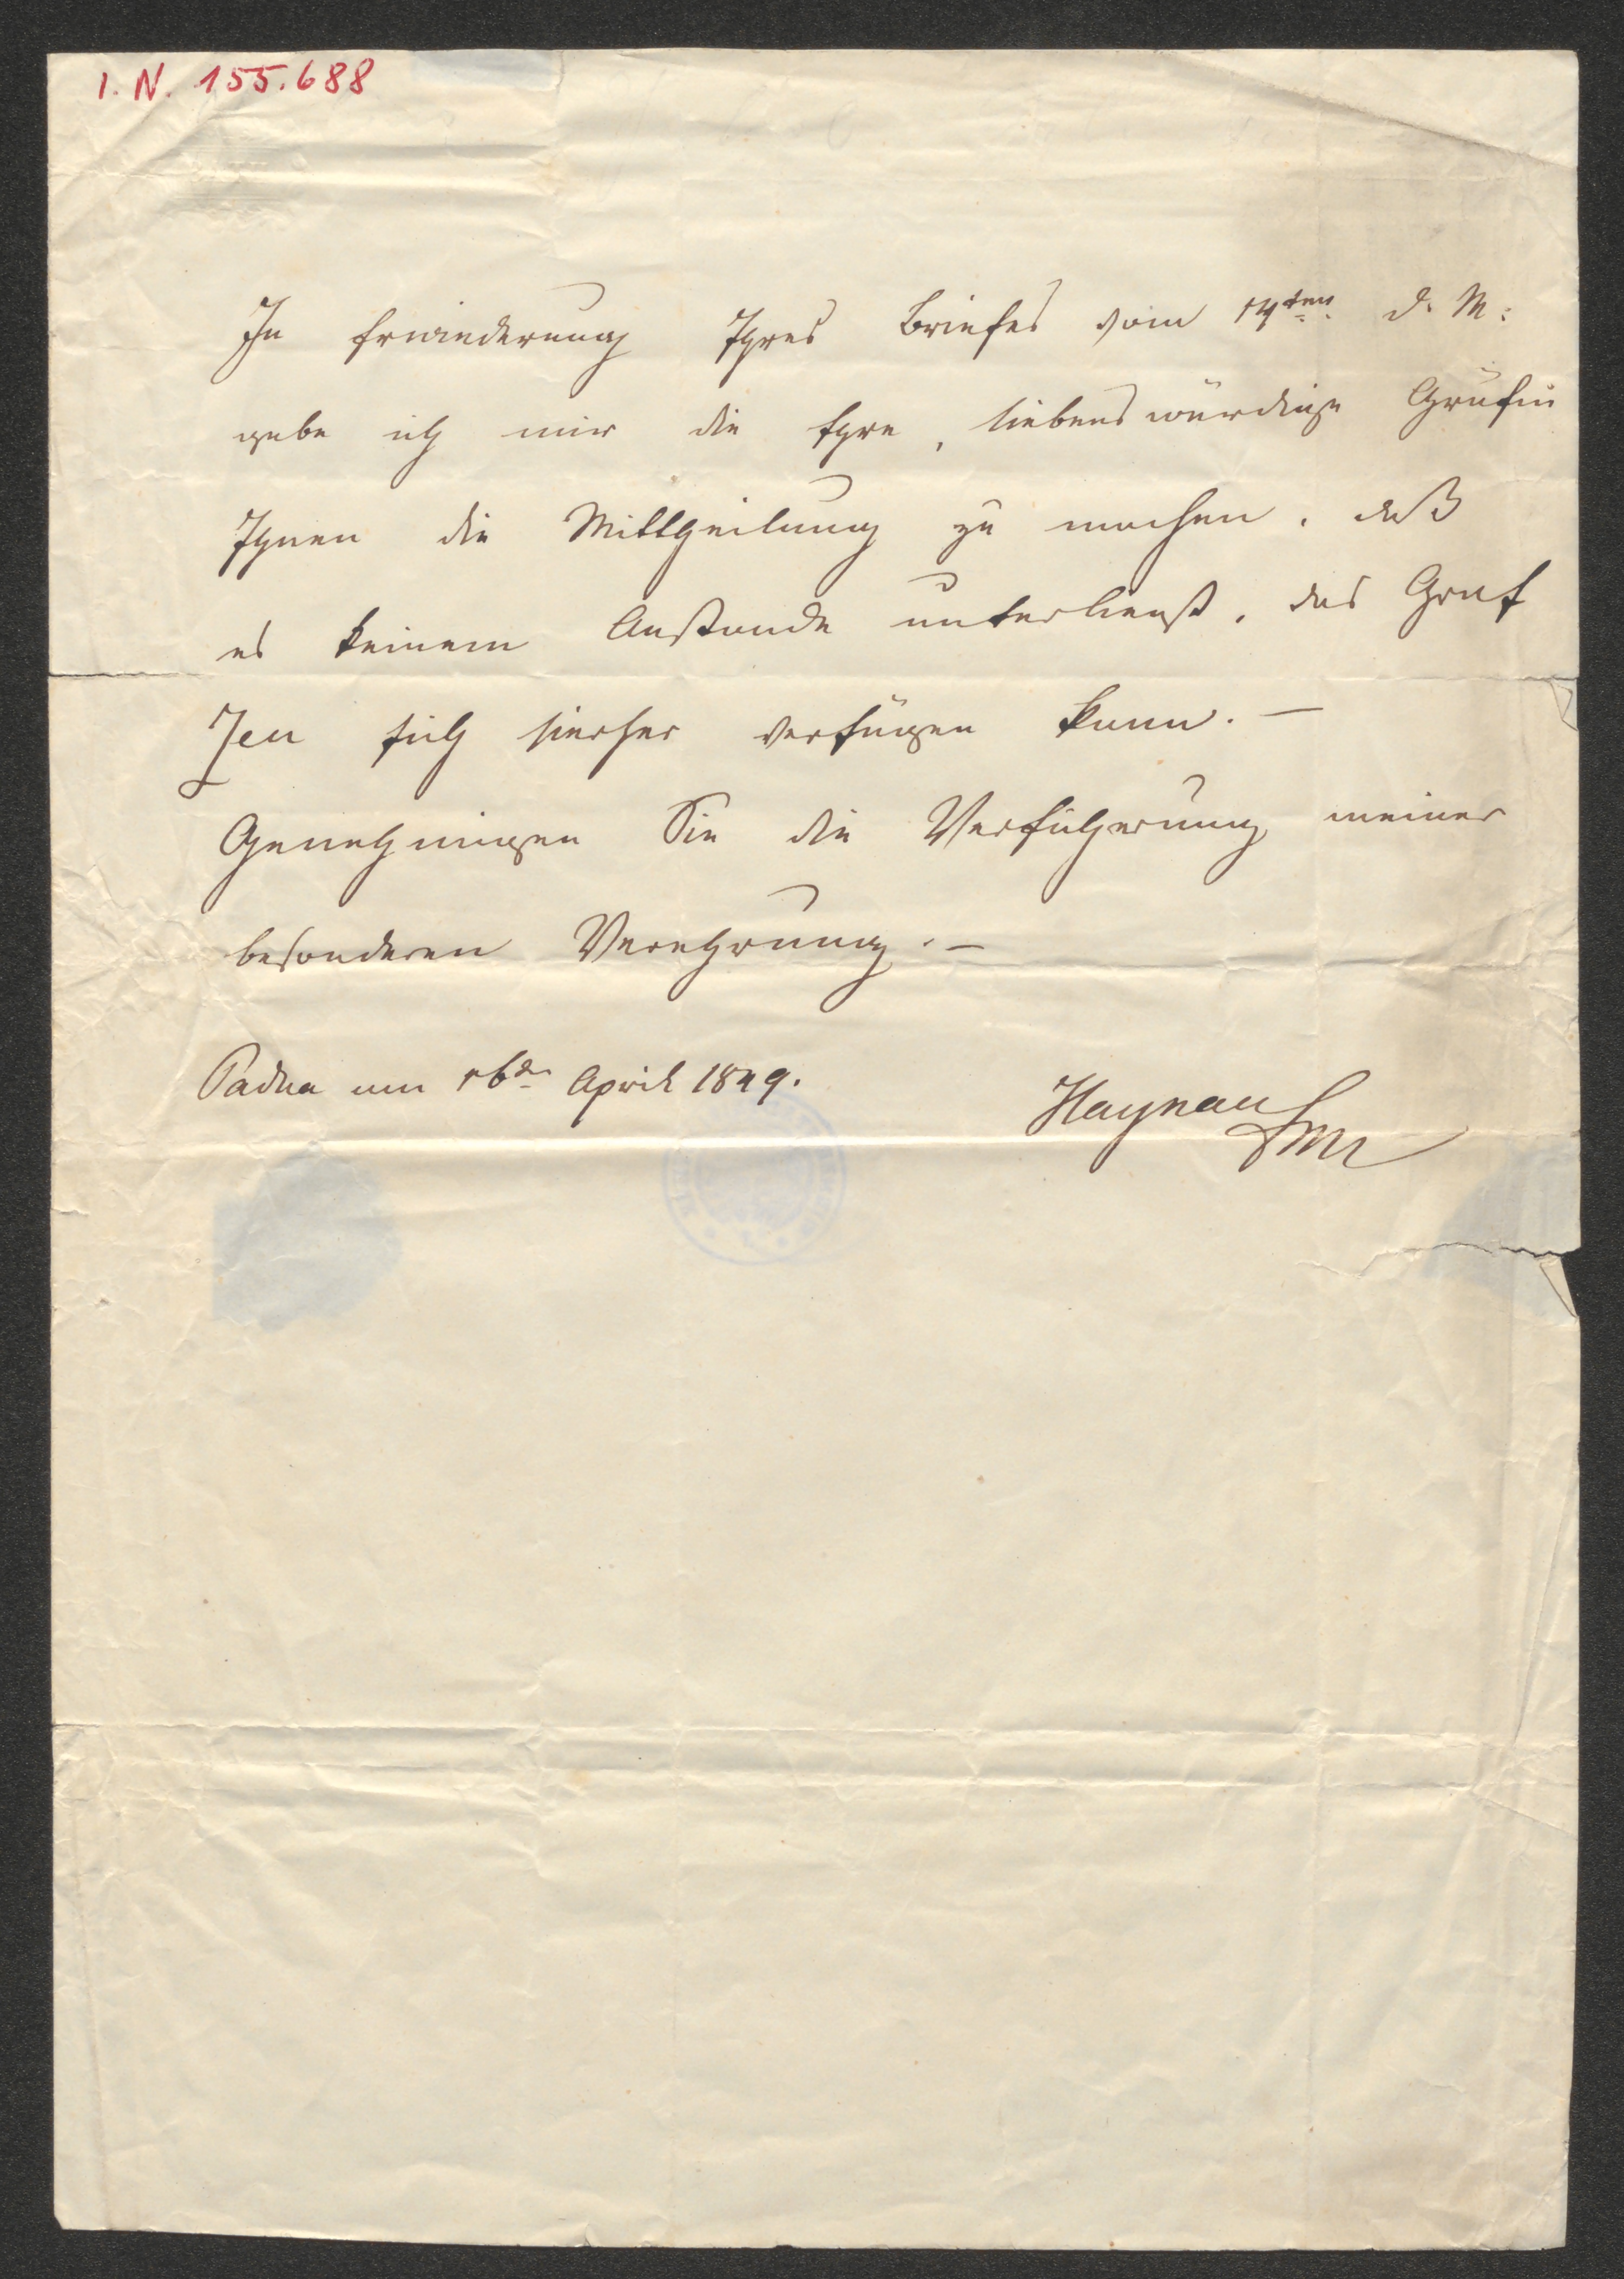 I. N. 155.688
In Erwiederung Ihres Briefes vom 14ten d. M:
gebe ich mir die Ehre, liebenswürdige Gräfin
Ihnen die Mittheilung zu machen, daß
es keinem Anstande unterliegt, das Graf
Zen sich hierher verfügen kann. —
Genehmigen Sie die Versicherung meiner
besonderen Verehrung. —
Padua am 16ten April 1849.
Haynau
FML